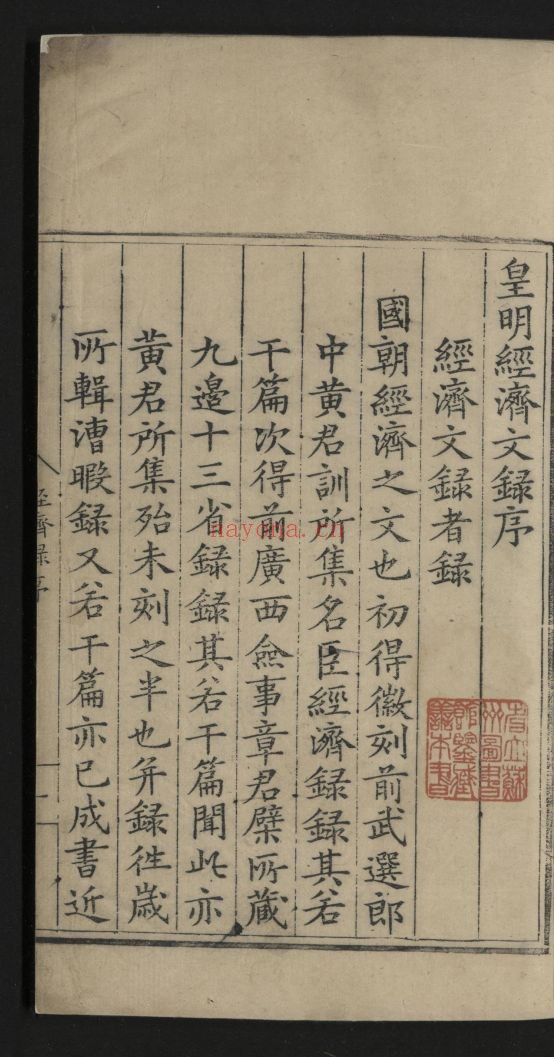 皇明經濟文録序
經濟文録者録
國朝經濟之文也初得徽刻前武選郎
中黄君訓所集名臣經濟録録其若
干篇次得前廣西僉事章君檗所蔵
九邊十三省録録其若干篇聞此亦
黄君所集殆未刻之半也并録徃嵗
所輯漕暇録又若干篇亦已成書近
經濟録序
一
nayona.cn